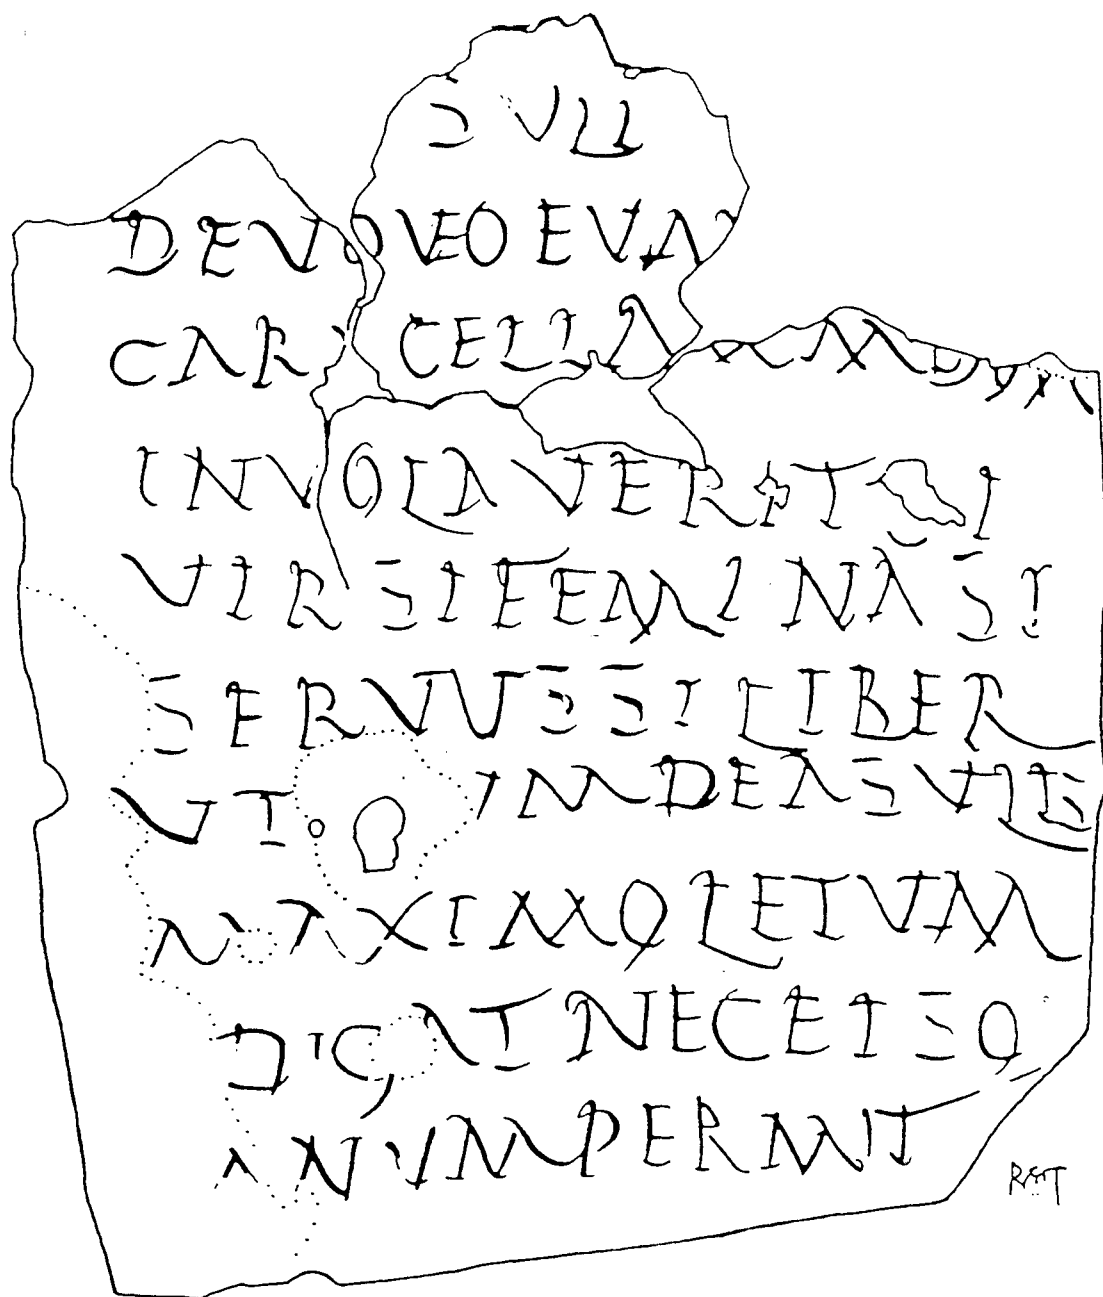 SVLI
DEVOVEO EVM
CARACELLAM
INVOLAVERIT SI
VIR SI FEMINA SI
SERVVS SI LIBER
VT VM DEA SVLIS
MAXIMO LETVM
DIGAT NEC EI SO
MNVM PERMIT